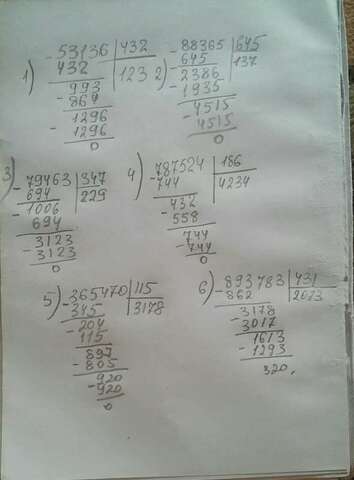 1) - 53136 | 432
432 | 123
993
- 864
1296
- 1296
0
2) - 88365 | 645
645 | 137
2386
- 1935
4515
- 4515
0
3) - 79463 | 347
694 | 229
- 1006
694
3123
- 3123
0
4) - 787524 | 186
744 | 4234
432
- 558
744
- 744
0
5) - 365470 | 115
345 | 3178
- 204
115
897
- 805
920
- 920
0
6) - 893783 | 431
862 | 2073
3178
- 3017
1613
- 1293
320.